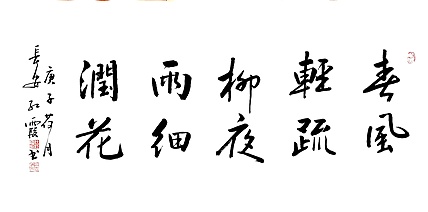 春風
輕疏
柳夜
雨細
潤花
庚子荷月
長安紅霞書